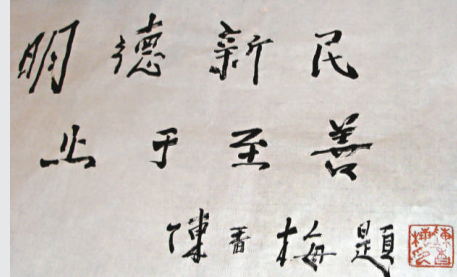 明德新民
止于至善
陳香梅題